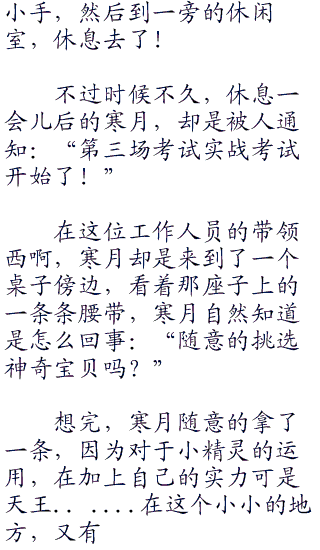 小手，然后到一旁的休闲
室，休息去了！
不过时候不久，休息一
会儿后的寒月，却是被人通
知：“第三场考试实战考试
开始了！”
在这位工作人员的带领
西啊，寒月却是来到了一个
桌子傍边，看着那座子上的
一条条腰带，寒月自然知道
是怎么回事：“随意的挑选
神奇宝贝吗？”
想完，寒月随意的拿了
一条，因为对于小精灵的运
用，在加上自己的实力可是
天王．．．．．．在这个小小的地
方，又有